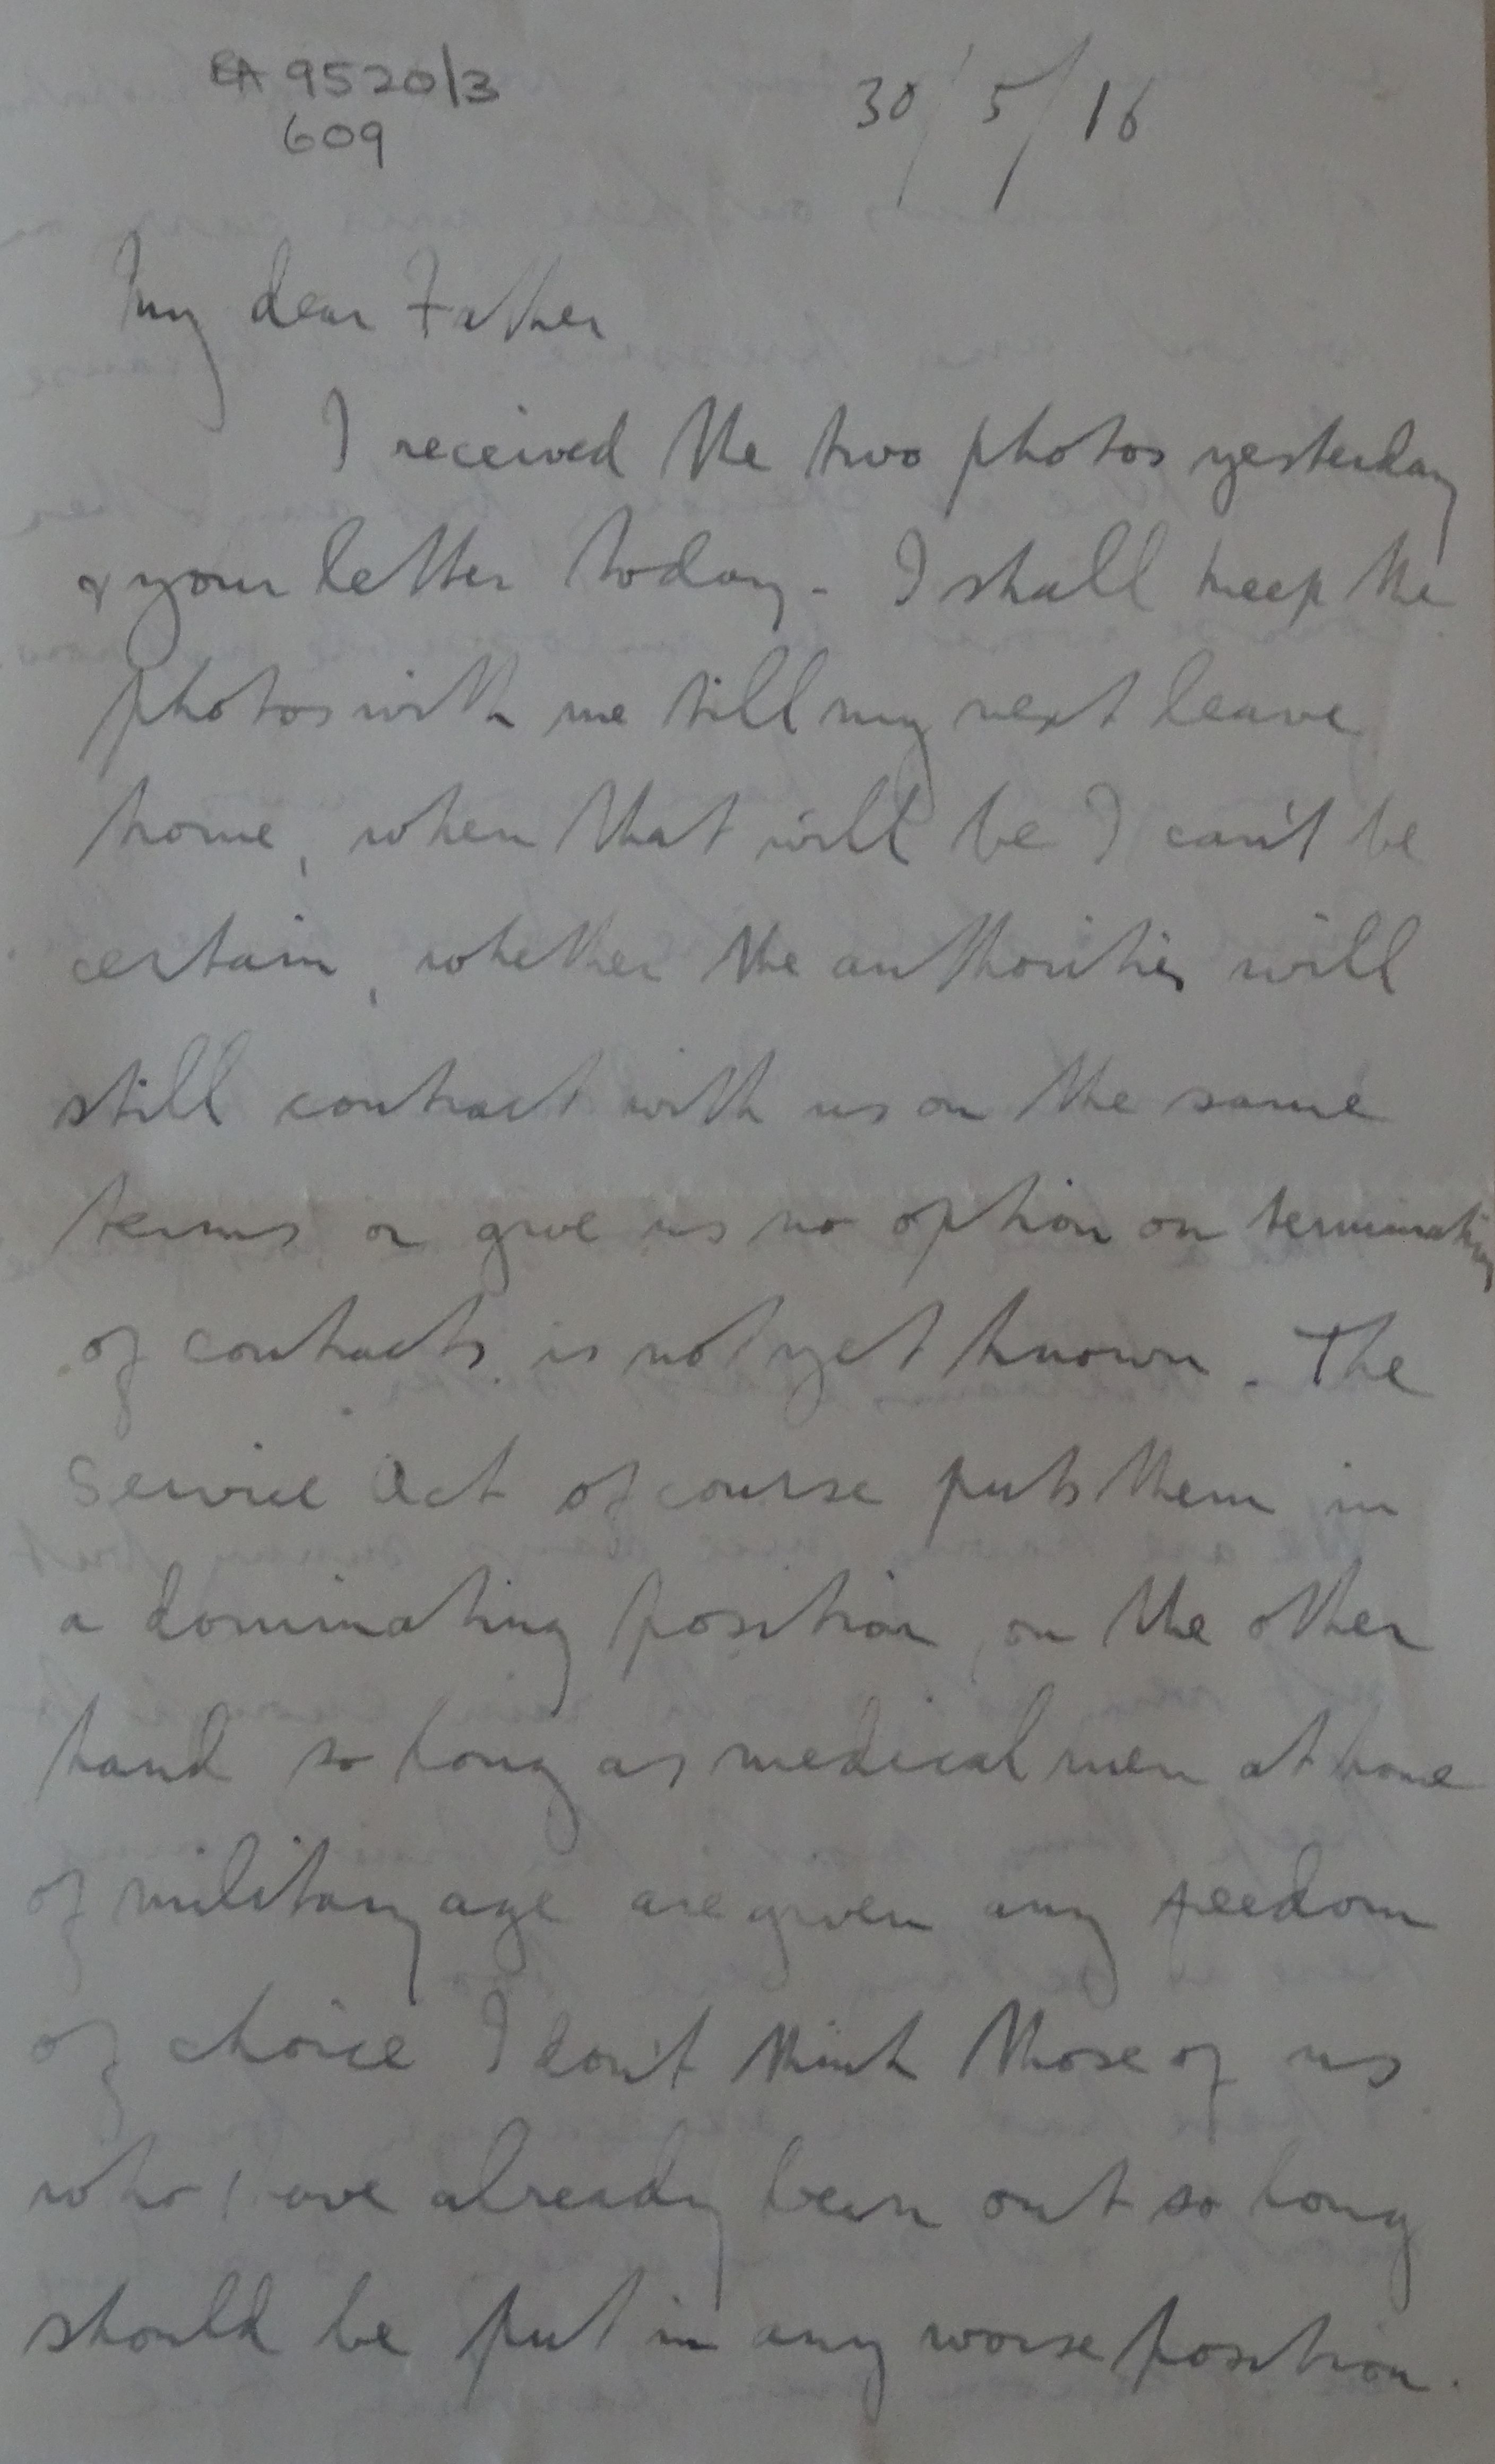 RA 9520/3
609
30/5/16
My dear Father
I received the two photos yesterday
& your letter today. I shall keep the
photos with me till my next leave
home, when that will be I can't be
certain, whether the authorities will
still contract with us on the same
terms or give us no option on terminating
of contracts is not yet known. The
Service Act of course puts them in
a dominating position, on the other
hand so long as medical men at home
of military age are given any freedom
of choice I don't think those of us
who have already been out so long
should be put in any worse position.